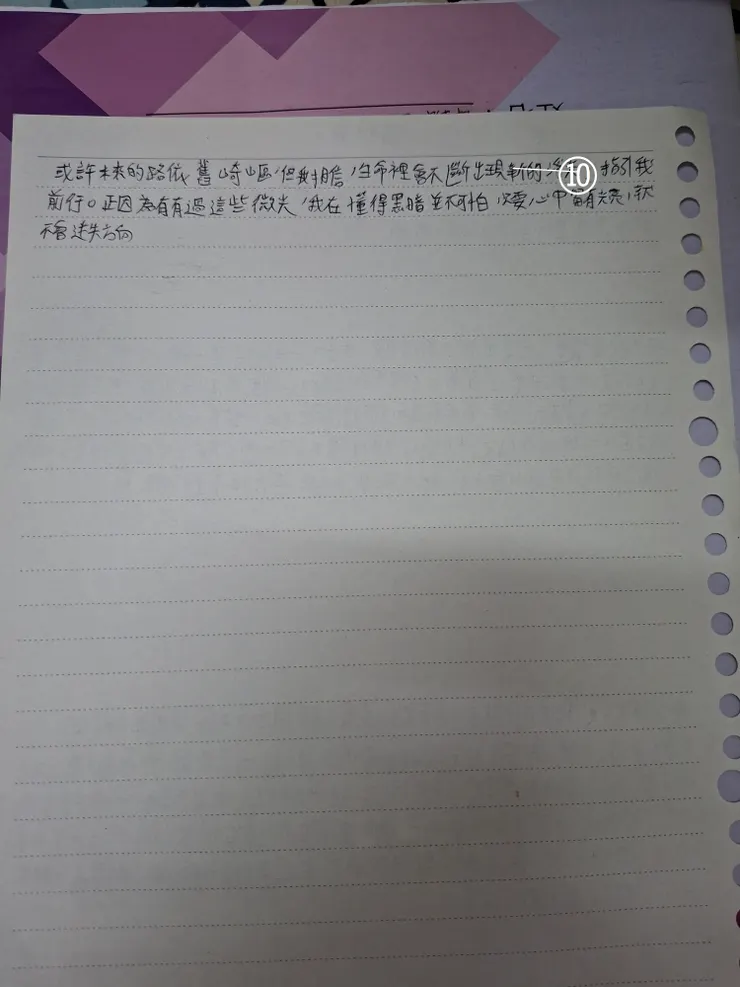 或許未來的路依舊崎嶇,但我相信,生命裡會不斷出現新的 ⑩ 指引我
前行。正因為有有過這些微光,我在懂得黑暗並不可怕,只要心中留有亮,就
不會迷失方向